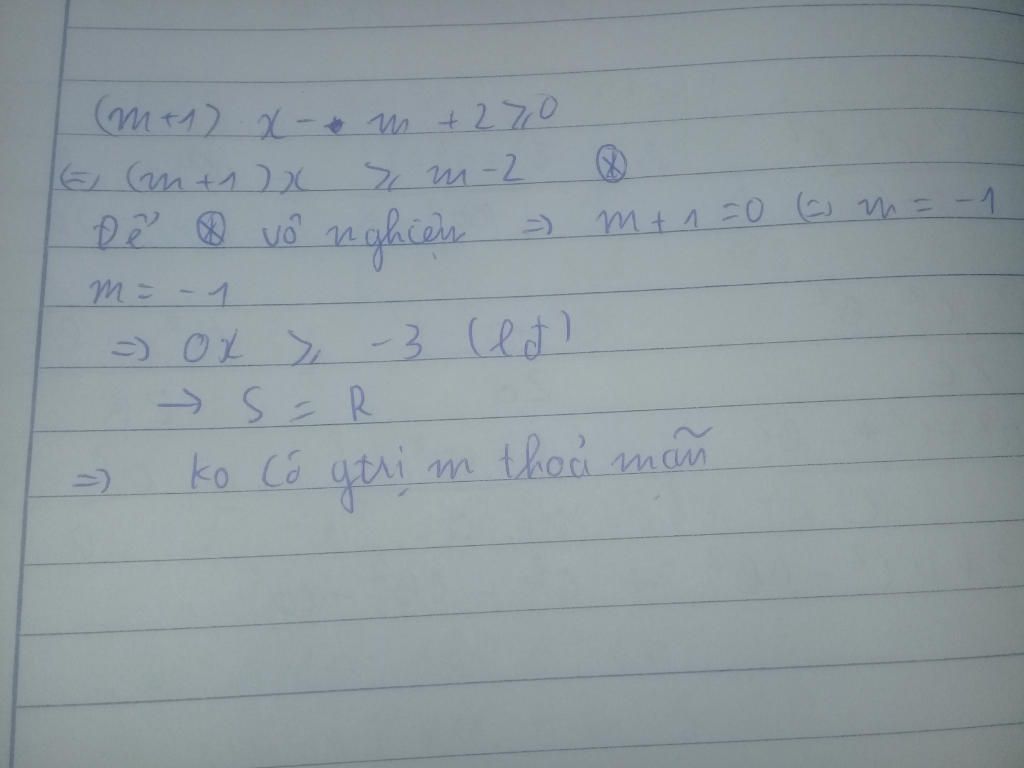 (m+1) x - m + 2 ⩾ 0
(=) (m+1)x ⩾ m-2 ⊛
Để ⊛ vô nghiệm => m+1=0 (=) m = -1
m = -1
=> 0x ⩾ -3 (lđ)
→ S = R
=> ko có gtrị m thoả mãn